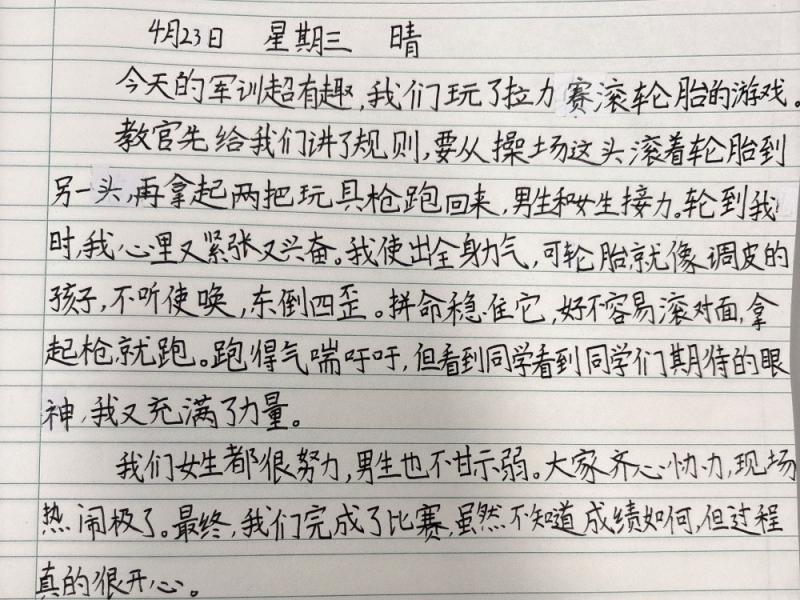 4月23日 星期三 晴
今天的军训超有趣,我们玩了拉力赛滚轮胎的游戏。
教官先给我们讲了规则,要从操场这头滚着轮胎到
另一头,再拿起两把玩具枪跑回来,男生和女生接力。轮到我
时,我心里又紧张又兴奋。我使出全身力气,可轮胎就像调皮的
孩子,不听使唤,东倒四歪。拼命稳住它,好不容易滚对面,拿
起枪就跑。跑得气喘吁吁,但看到同学看到同学们期待的眼
神,我又充满了力量。
我们女生都很努力,男生也不甘示弱。大家齐心协力,现场
热闹极了。最终,我们完成了比赛,虽然不知道成绩如何,但过程
真的很开心。